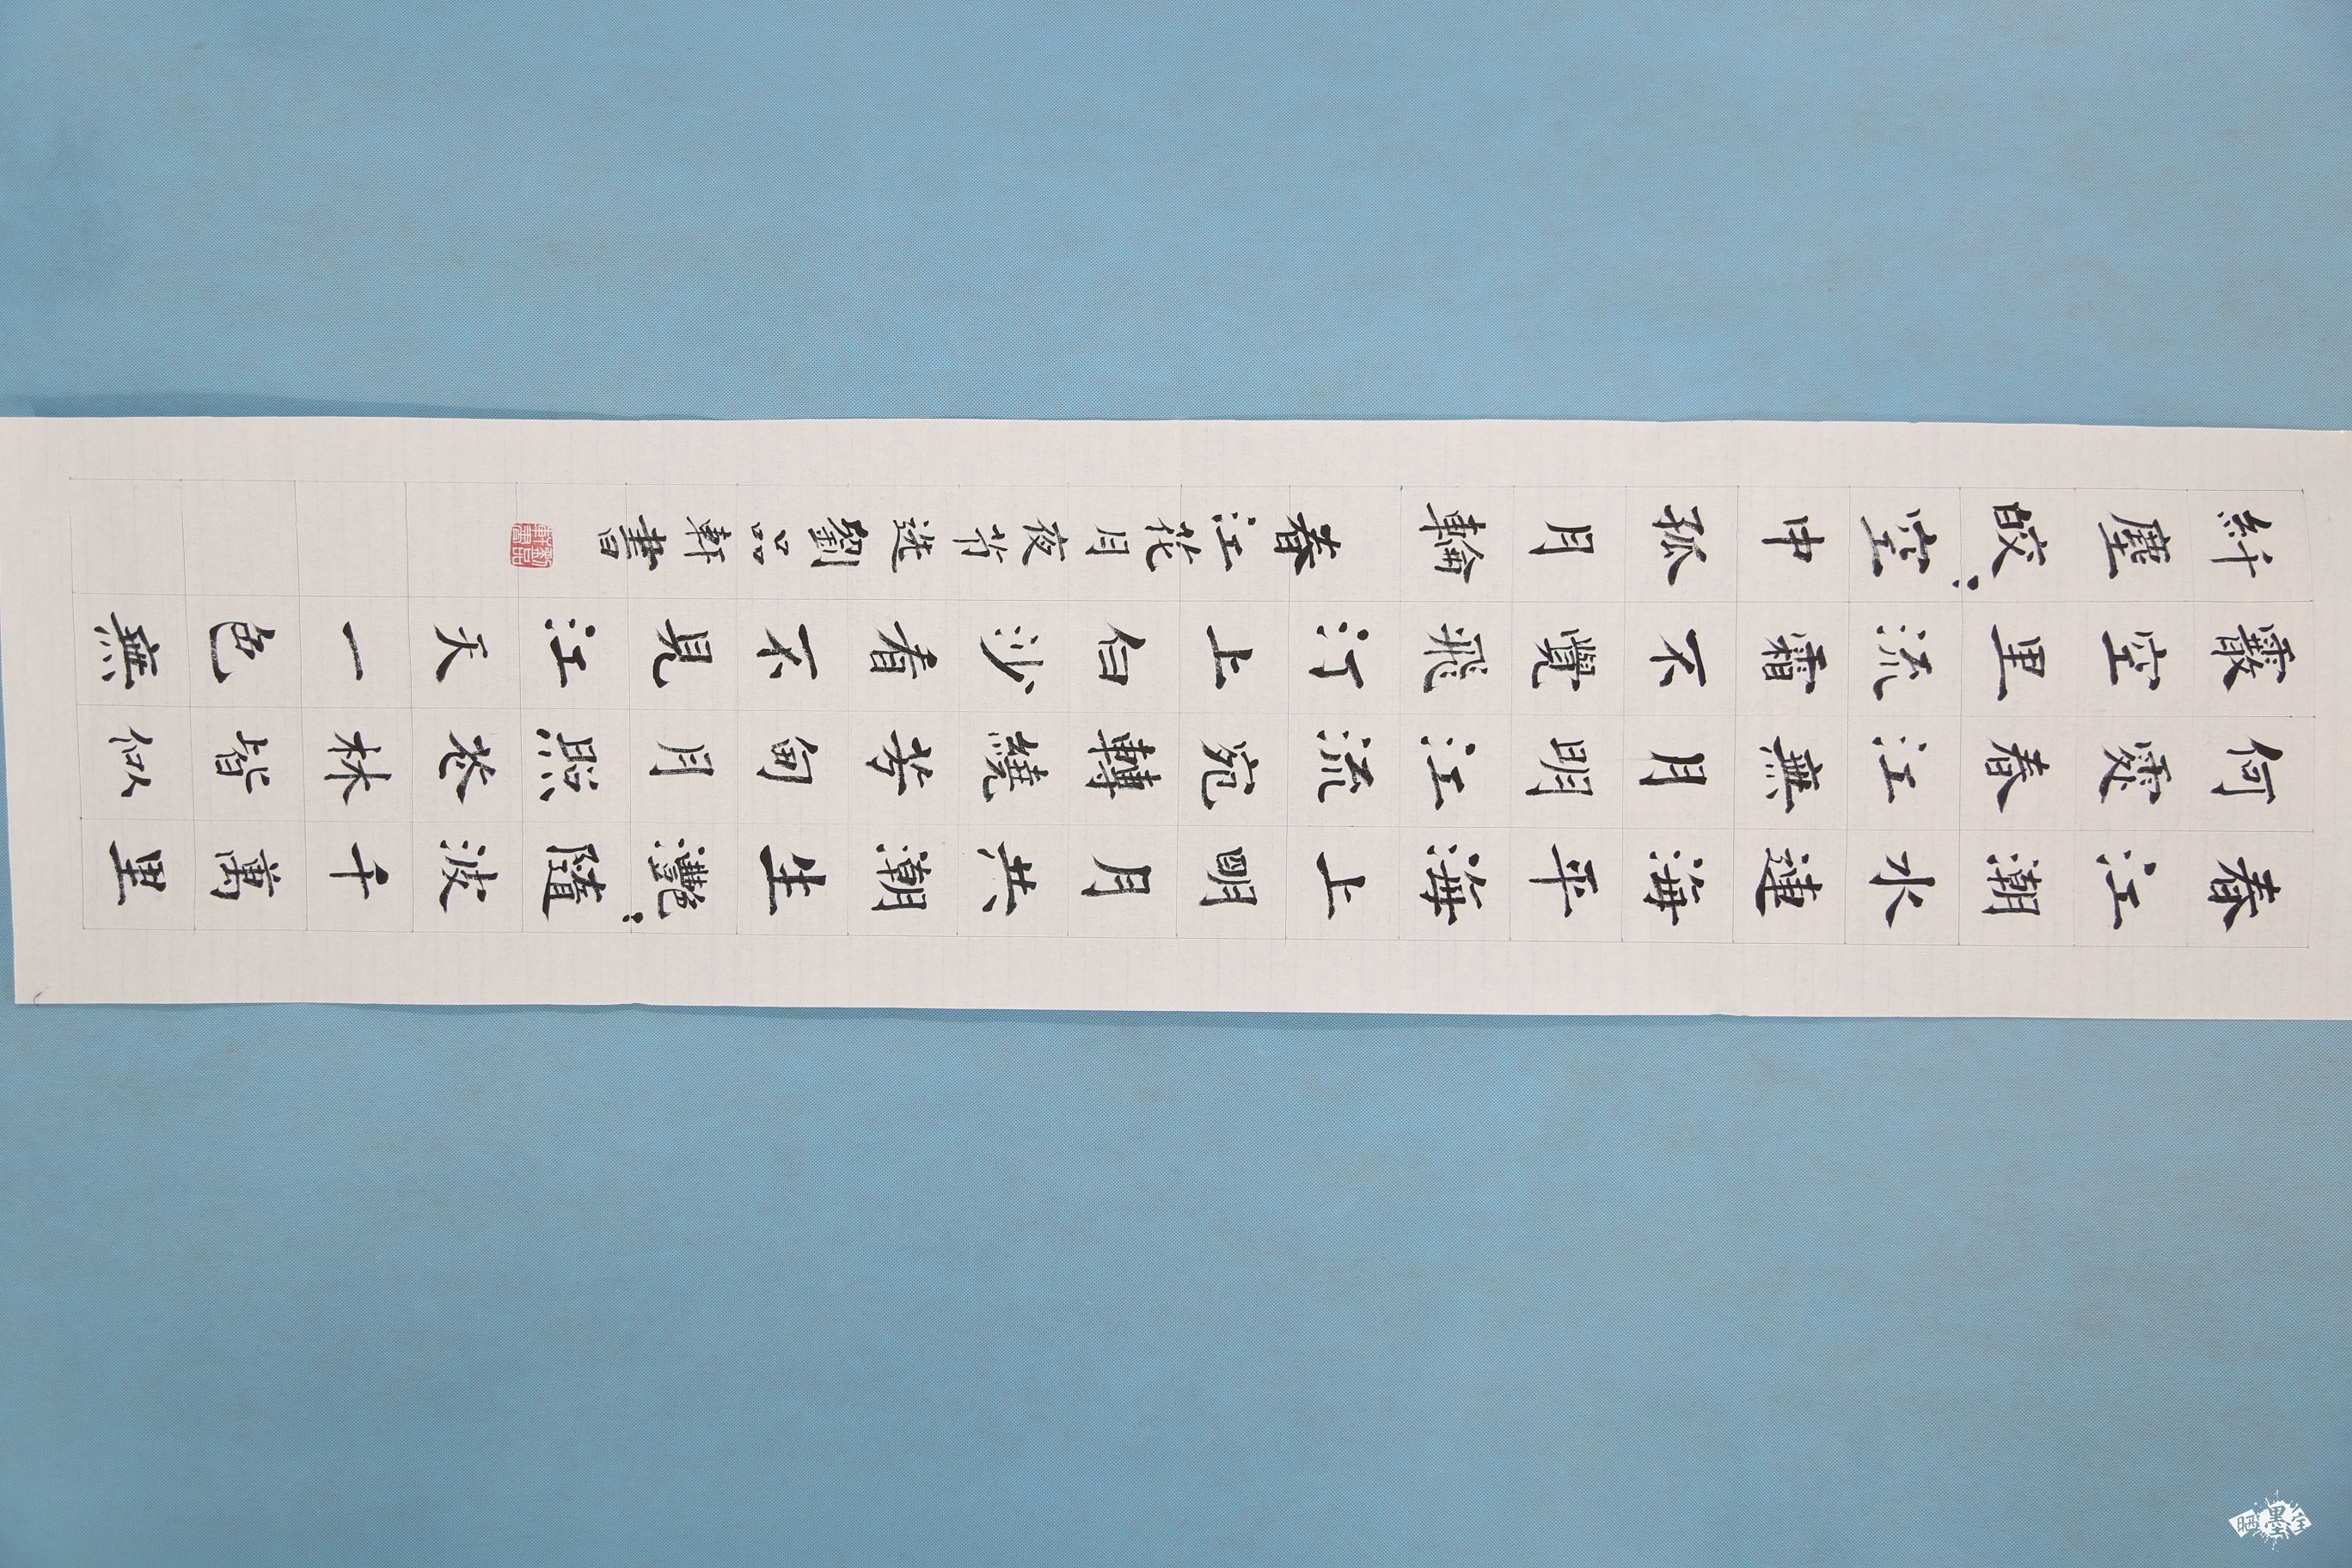 春江潮水連海平海上明月共潮生灩：隨波千萬里
何處春江無月明江流宛轉繞芳甸月照花林皆似
霰空里流霜不覺飛汀上白沙看不見江天一色無
纤塵皎：空中孤月輪 春江花月夜节选 劉品軒書
劉品軒書
晒墨宝